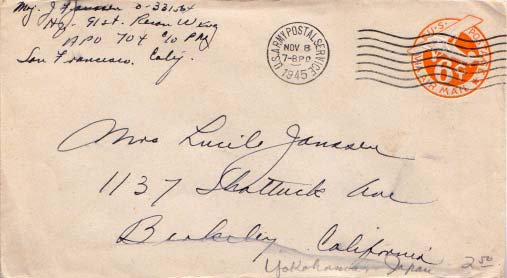 Maj. J Janssen O-331564
Hq. 91st. Recon Wing
APO 704 c/o PM
San Francisco. Calif.
U.S. ARMY POSTAL SERVICE
NOV 8
7-8PM
1945
U.S. POSTAGE
VIA AIR MAIL
Mrs Lucile Janssen
1137 Shattuck Ave
Berkeley California
Yokohama, Japan 2.50